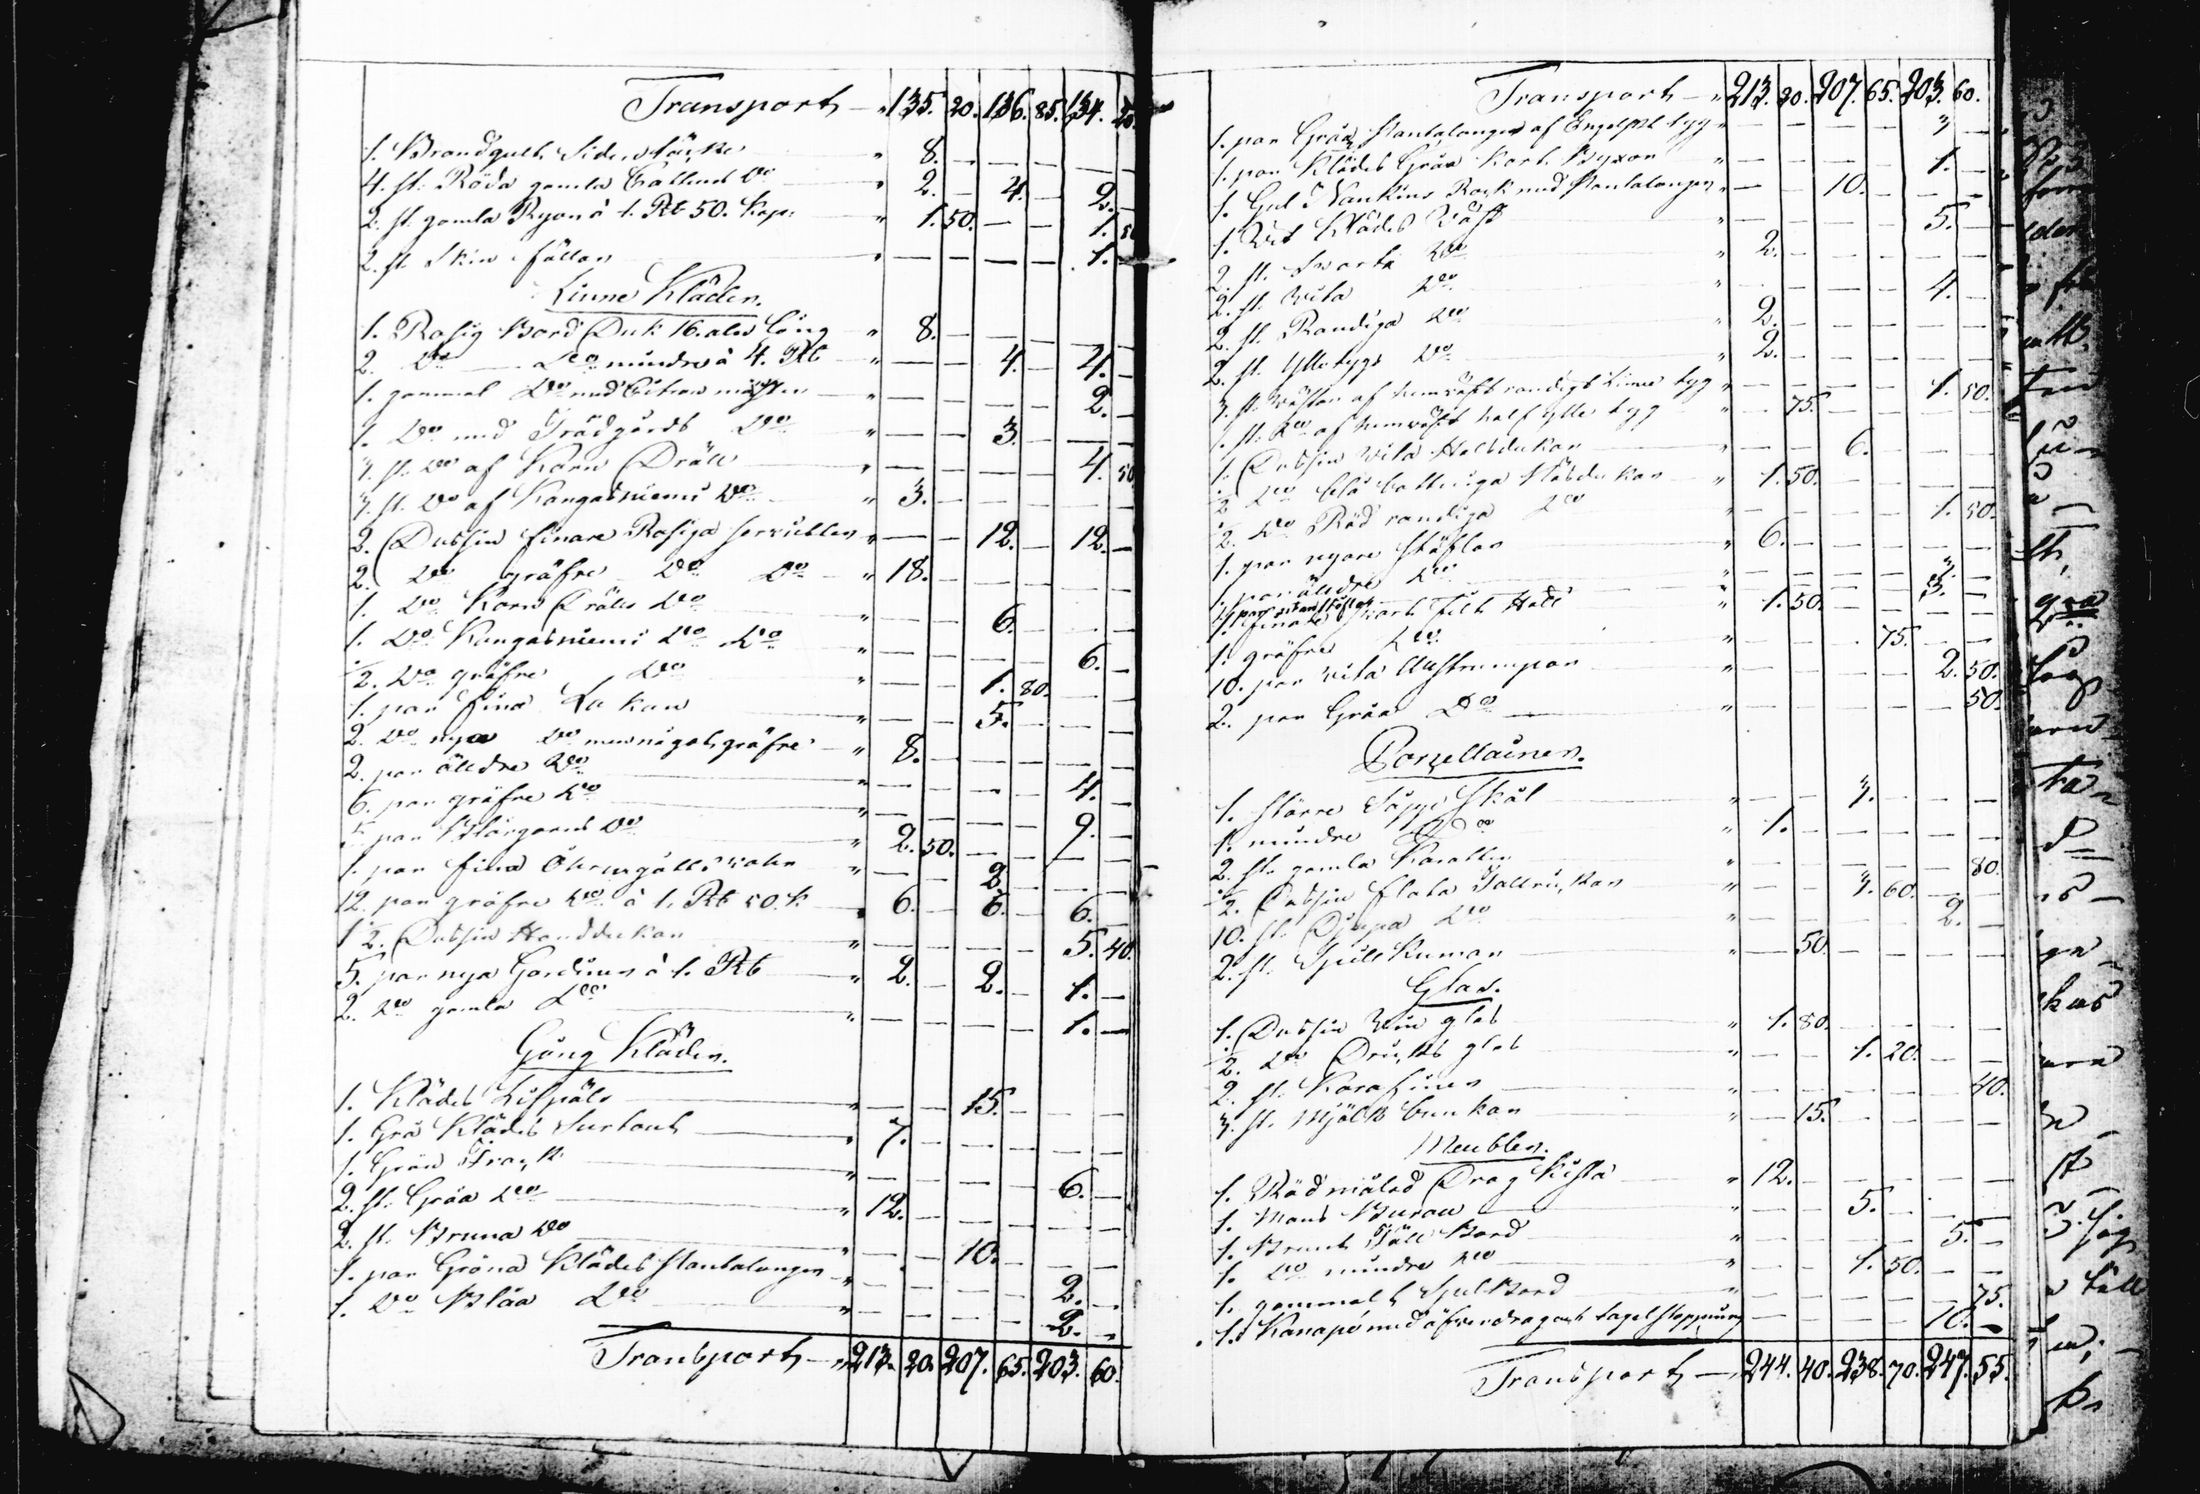 Transport — 135. 20. 136. 85. 134. 20.
1. Brandgult Sidenstäcke " 8. — — — — —
4. st. Röda gamla Cattuns Do " 2. — 4. — 2. —
2. st. gamla Ryor à 1. Rb 50. Kop. " 1. 50. — — 1. 50
2. st. Skin fällar " — — — — 1. —
Linne Kläder.
1. Rosig Bord Duk 16. alnr lång " 8. — — — — —
2. Do Do mindre à 4. Rb " — — 4. — 4. —
1. gammal Do med Citron mönster " — — — — 2. —
1. Do med Trädgårds Do " — — 3. — — —
3. st. Do af Korn Dräll " — — — — 4. 50
3. st. Do af Kangasniemi Do " 3. — — — — —
2. Dussin finare Rosiga servietter " — — 12. — 12. —
2. Do gröfre Do Do " 18. — — — — —
1. Do Korn Drälls Do " — — 6. — — —
1. Do Kangasniemi Do Do " — — — — 6. —
1/2. Do gröfre Do " — — 1. 80. — —
1. par fina Lakan " — — 5. — — —
2. Do nya Do mer något gröfre " 8. — — — — —
2. par äldre Do " — — — — 4. —
6. par gröfre Do " — — — — 9. —
5 par Blårgarns Do " 2. 50. — — — —
1. par fina Öhrngåttsvahr " — — 2. — — —
12. par gröfre Do à 1. Rb 50. k " 6. — 6. — 6. —
1 1/2. Dussin Handdukar " — — — — 5. 40.
5. par nya Gardiner à 1. Rb " 2. — 2. — 1. —
2. Do gamla Do " — — — — 1. —
Gång Kläder.
1. Klädes Lifpäls " — — 15. — — —
1. Grå Klädes Surtout " 7. — — — — —
1. Grön Frack " — — — — 6. —
2. st. Gråa Do " 12. — — — — —
2. st. Bruna Do " — — 10. — — —
1. par Gröna Klädes Pantalonger " — — — — 2. —
1. Do Blåa Do " — — — — 2. —
Transport — 213. 20. 207. 65. 203. 60.
Transport — 213. 20. 207. 65. 203. 60.
1. par Gråa Pantalonger af Engelskt tyg " — — — — 3 —
1. par Klädes Gråa Kort Byxor " — — — — 1. —
1. Gul Nankins Rock med Pantalonger " — — 10. — — —
1. Vit Klädes Väst " — — — — 5. —
2. st. Svarta Do " 2. — — — — —
2. st. Vita Do " — — — — 4. —
2. st. Randiga Do " 2. — — — — —
2. st. Ylletygs Do " 2. — — — — —
3. st. Västar af hemväft randigt Linne tyg " — — — — 1. 50.
1. st. Do af hemväft half ylle tyg " — 75. — — — —
1. Dussin Vita Halsdukar " — — 6. — — —
1/2 Do blå Cattuniga Näsdukar " 1. 50. — — — —
1/2. Do Röd randiga Do " — — — — 1. 50.
1. par nyare Stöflar " 6. — — — — —
1. par äldre Do " — — — — 3. —
1. finare Svart filt Hatt " 1. 50. — — — —
1. gröfre Do " — — — 75. — —
10. par vita Ullstrumpor " — — — — 2. 50.
2. par Gråa Do " — — — — — 50.
Porzellainer.
1. större Soppe Skål " — — 3. — — —
1. mindre Do " 1. — — — — —
2. st. gamla Karotter " — — — — — 80.
1/2. Dussin flata Talrickar " — — 3. 60. — —
10. st. Djupa Do " — — — — 2. —
2. st. Spillkummar " — 50. — — — —
Glas.
1. Dussin Vin glas " 1. 80. — — — —
1/2. Do Dricks glas " — — 1. 20. — —
2. st. Karafiner " — — — — — 40.
3. st. Mjölk bunkar " — 15. — — — —
Meubler.
1. Rödmålad Drag Kista " 12. — — — — —
1. Stans Burau " — — 5. — — —
1. Brunt Fäll Bord " — — — — 5. —
1. Do mindre Do " — — 1. 50. — —
1. gammalt Spel Bord " — — — — — 75.
1. Kanapé med öfverdrag och tagelstoppning " — — — — 10. —
Transport — 244. 40. 238. 70. 247. 55.